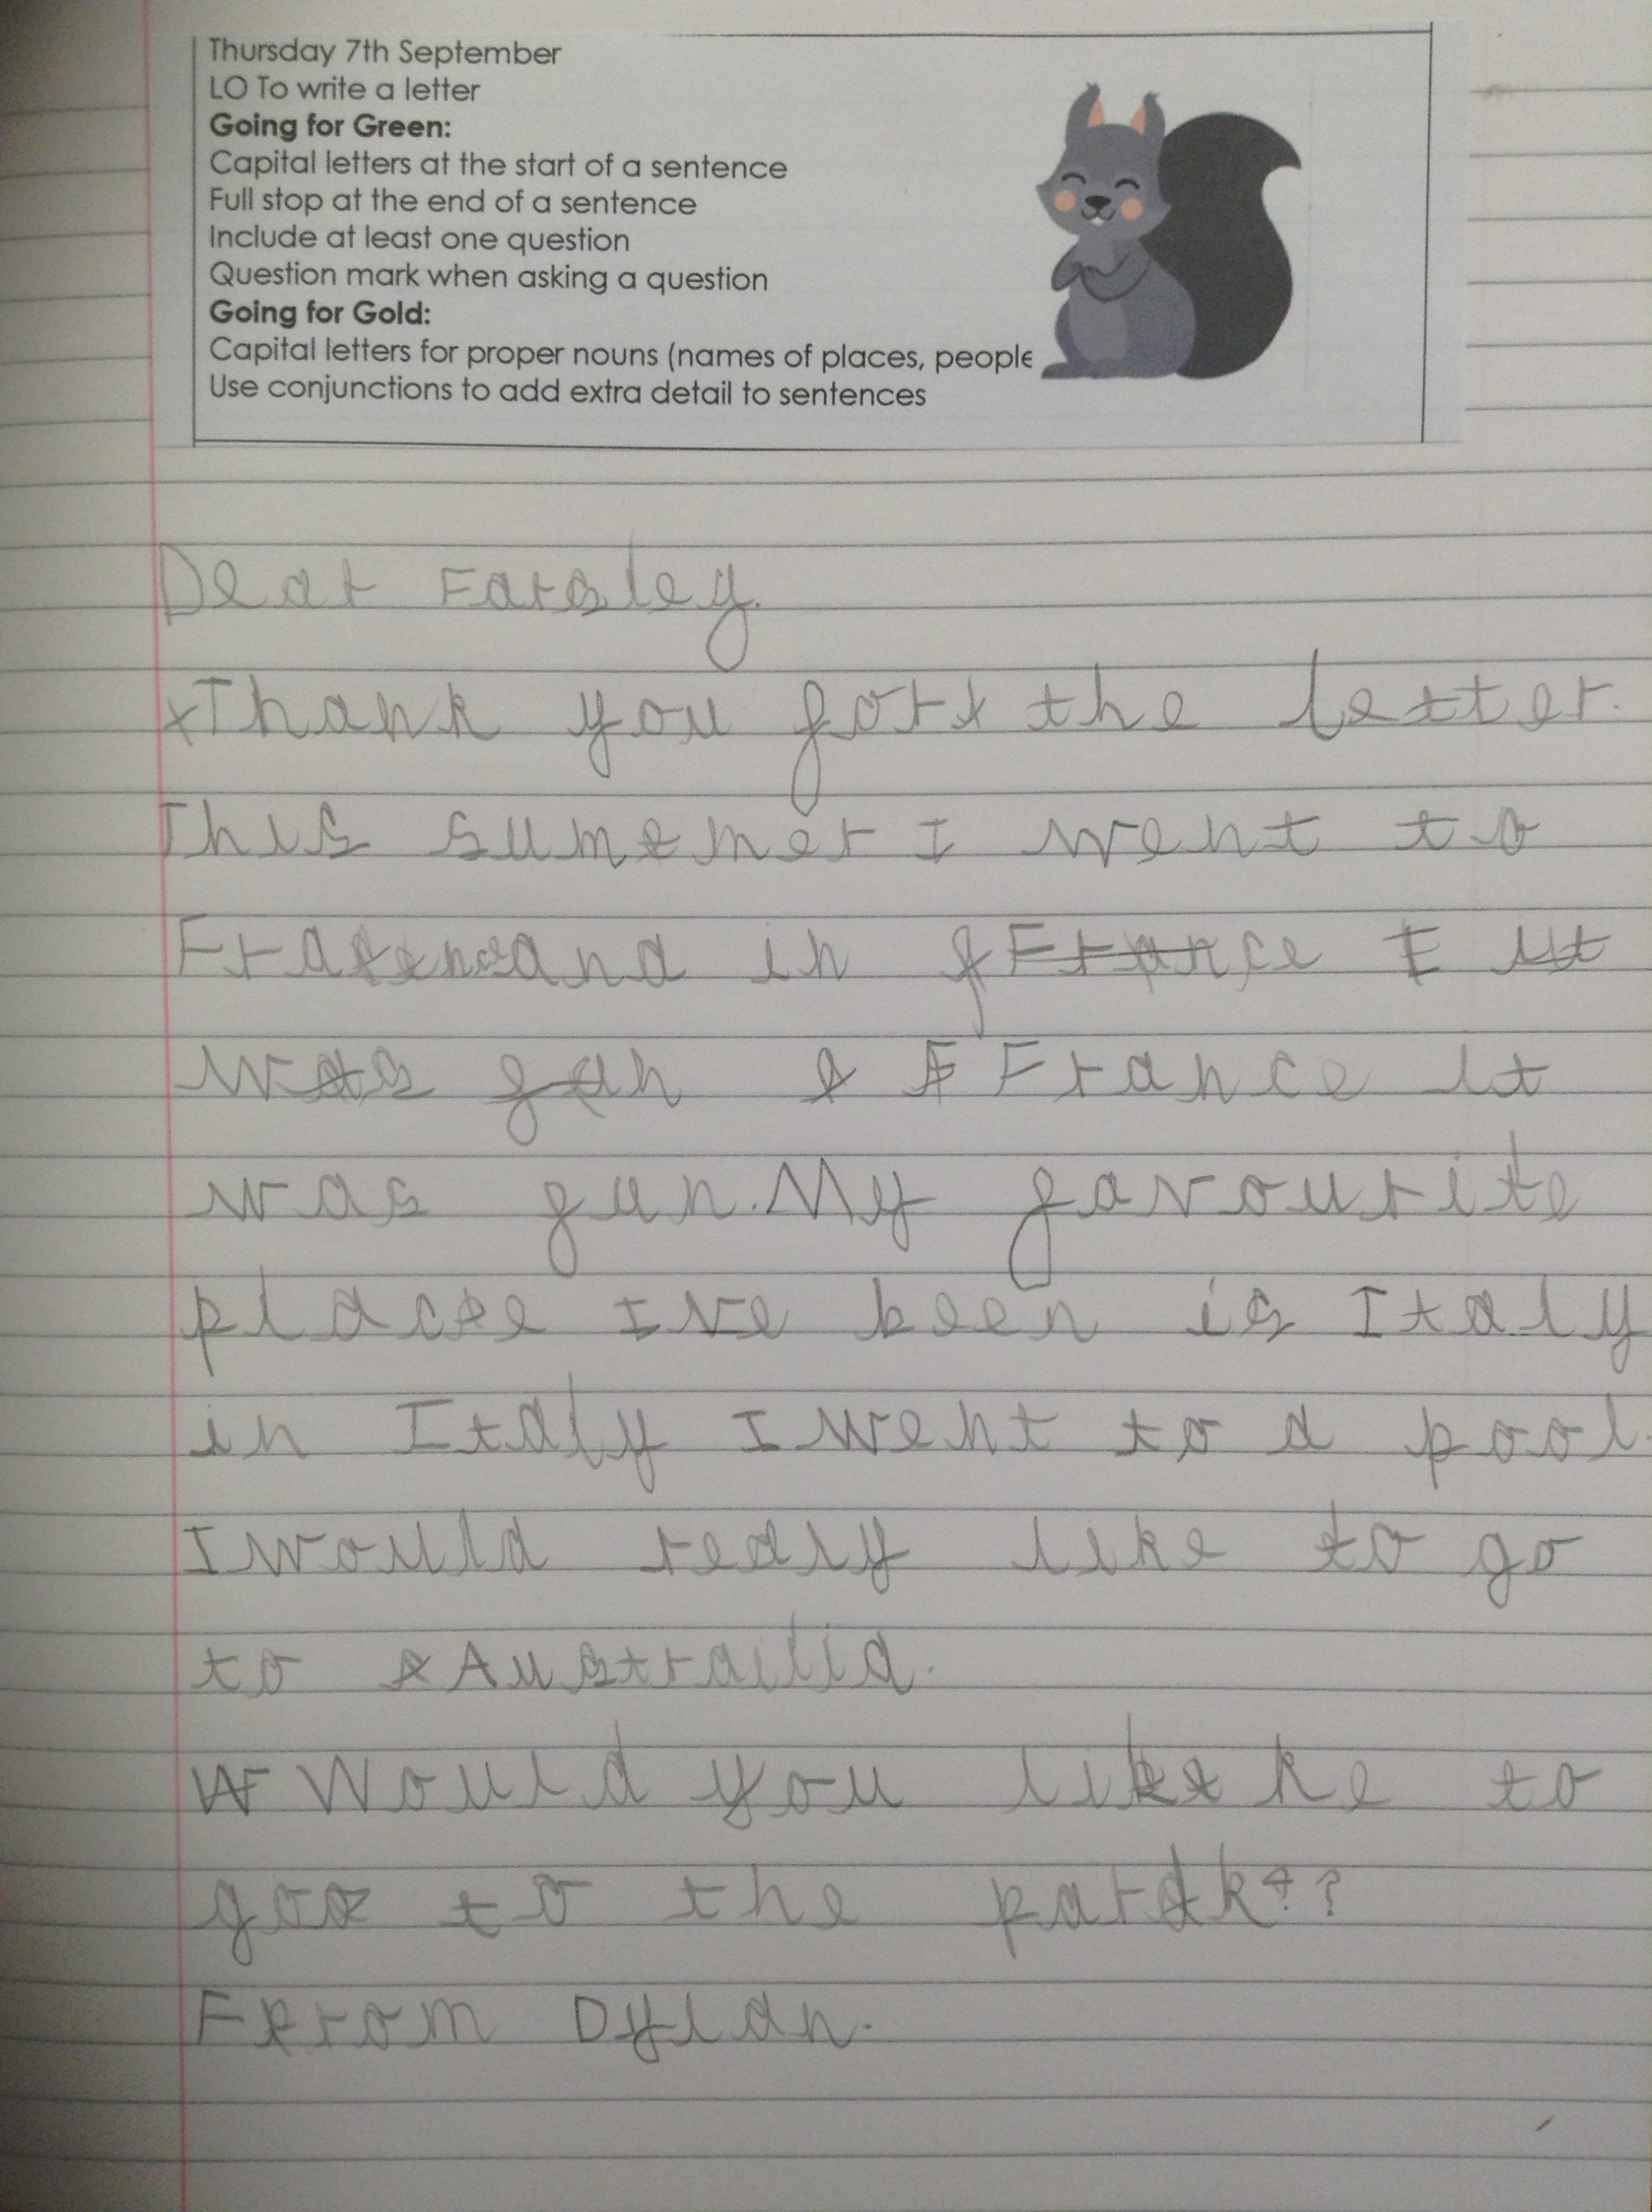 Thursday 7th September
LO To write a letter
Going for Green:
Capital letters at the start of a sentence
Full stop at the end of a sentence
Include at least one question
Question mark when asking a question
Going for Gold:
Capital letters for proper nouns (names of places, people
Use conjunctions to add extra detail to sentences
Dear Farsley.
Thank you for the letter.
This sumemer I went to
and in France I it
was fun France it
was fun. My favourite
place Ive been is Italy
in Italy I went to a pool.
I would realy like to go
to Austrailia.
W Would you like to
go to the park??
From Dylan.